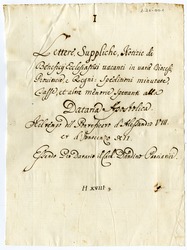 I
Lettere, Suppliche, Notizie di
Beneficj Ecclesiastici vacanti in varie Diocesi
Provincie, e Regni: Spedizioni minutate
Tasse, et altre materie spettanti alla
Dataria Apostolica
Nel tempo del Pontificato d'Alessandro VIII
et d'Innocenzo XII
Essendo Pro Datario il Card.